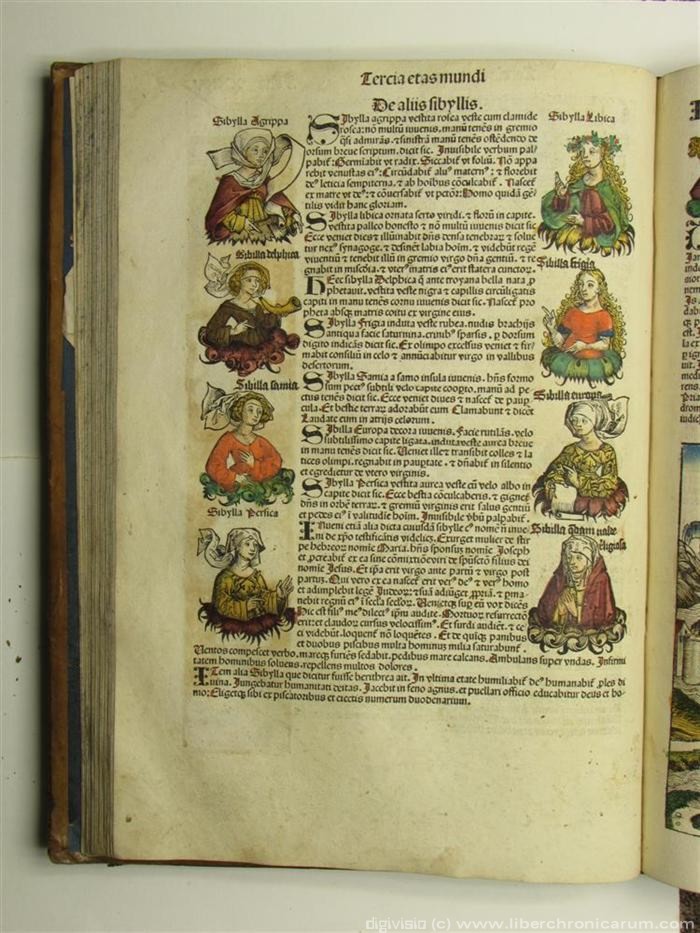 Tercia etas mundi
De aliis sibyllis.
Sibylla Agrippa
Sibylla Libica
Sibylla agrippa vestita rosea veste cum clamide
rosea: nō multū iuuenis. manū tenēs in gremio
q̄si admirās. ⁊ sinistrā manū tenēs ostēdendo de
orsum breue scriptum. dicit sic. Inuisibile verbum pal
pabit̄: Germiabit vt radix. Siccabit̄ vt foliū. Nō appa
rebit venustas eiꝰ: Circūdabit̄ aluꝰ maternꝰ: ⁊ florebit
deꝰ leticia sempiterna. ⁊ ab hoībus cōculcabit̄. Nascet̄
ex matre vt deꝰ: ⁊ cōuersabit̄ vt pctōr: Domo quidā gē
tilis vidit hanc gloriam.
Sibylla libica ornata serto viridi. ⁊ florū in capite.
vestita pallio honesto ⁊ nō multū iuuenis dicit sic
Ecce veniet dies ⁊ illuīnabit dn̄s densa tenebraꝝ ⁊ solue
tur nexꝰ synagoge. ⁊ desinēt labia hoīm. ⁊ videbūt regē
viuentiū ⁊ tenebit illū in gremio virgo dn̄a gentiū. ⁊ re
gnabit in mīscdīa. ⁊ vterꝰ matris eiꝰ erit statera cunctoꝝ.
Sibilla delphica
Sibilla frigia
Hec sibylla Delphica q̄ ante troyana bella nata ꝓ
phetauit. vestita veste nigra ⁊ capillis circūligatis
capiti in manu tenēs cornu iuuenis dicit sic. Nascet̄ pro
pheta absqꝫ matris coitu ex virgine eius.
Sibylla Frigia induta veste rubea. nudis brachijs
antiqua facie saturnina. crinibꝰ sparsis. ꝓ dorsum
digito indicās dicit sic. Ex olimpo excelsus veniet ⁊ fir
mabit consiliū in celo ⁊ annūciabitur virgo in vallibus
desertorum.
Sibilla samia
Sibilla europa
Sibylla Samia a samo insula iuuenis. hn̄s formo
sum pectꝰ subtili velo capite coopto. manū ad pe
ctus tenēs dicit sic. Ecce veniet diues ⁊ nascet̄ de paup̄
cula. Et bestie terraꝝ adorabūt eum Clamabunt ⁊ dicēt
Laudate eum in atrijs celorum.
Sibilla Europa decora iuuenis. Facie rutilās. velo
subtilissimo capite ligata. induta veste aurea breue
in manu tenēs dicit sic. Ueniet ille ⁊ transibit colles ⁊ la
tices olimpi. regnabit in paupertate. ⁊ dn̄abit̄ in silentio
et egredietur de vtero virginis.
Sibylla Persica
Sibylla Persica vestita aurea veste cū velo albo in
capite dicit sic. Ecce bestia cōculcaberis. ⁊ gignet̄
dn̄s in orbē terraꝝ. ⁊ gremiū virginis erit salus gentiū
et pedes eiꝰ ī valitudīe hoīm. Inuisibile vbū palpabit̄.
Sibilla quedam
Inueni etiā alia dicta cuiusdā sibylle cꝰ nomē nō inue
ni de xp̄o testificātis videlicꝫ. Exurget mulier de stir
pe hebreoꝝ nomīe Maria. hn̄s sponsuꝫ nomīe Joseph
et ꝓcreabit̄ ex ea sine cōmixtiōe viri de spūsctō filius dei
nomīe Jesus. Et ip̄a erit virgo ante partū ⁊ virgo post
partus. Qui vero ex ea nascet̄ erit verꝰ deꝰ ⁊ verꝰ homo
et adimplebit legē Judeoꝝ: ⁊ suā adiūget ꝓpriā. ⁊ ꝑma
nebit regnū eiꝰ ī secla secloꝝ. Uenietqꝫ suꝑ eū vox dicēs
Hic est filiꝰ meꝰ dilectꝰ ip̄m audite. Mortuoꝝ resurrectō
erit: et claudoꝝ cursus velocissimꝰ. Et surdi audiēt. ⁊ ce
ci videbūt. loquent̄ nō loquētes. Et de quīqꝫ panibus
et duobus piscibus multa hominuꝫ milia saturabunt̄.
Uentos compescet verbo. mareqꝫ furiēs sedabit. pedibus mare calcans. Ambulans super vndas. Infirmi
tatem hominibus soluens. repellens multos dolores.
Item alia Sibylla que dicitur fuisse herithrea ait. In vltima etate humiliabit̄ deꝰ humanabit̄ ꝓles di
uina. Jungebatur humanitati deitas. Jacebit in feno agnus. et puellari officio educabitur deus et ho-
mo: Eligetqꝫ sibi ex piscatoribus et eiectis numerum duodenarium.
digivisio (c) www.liberchronicarum.com